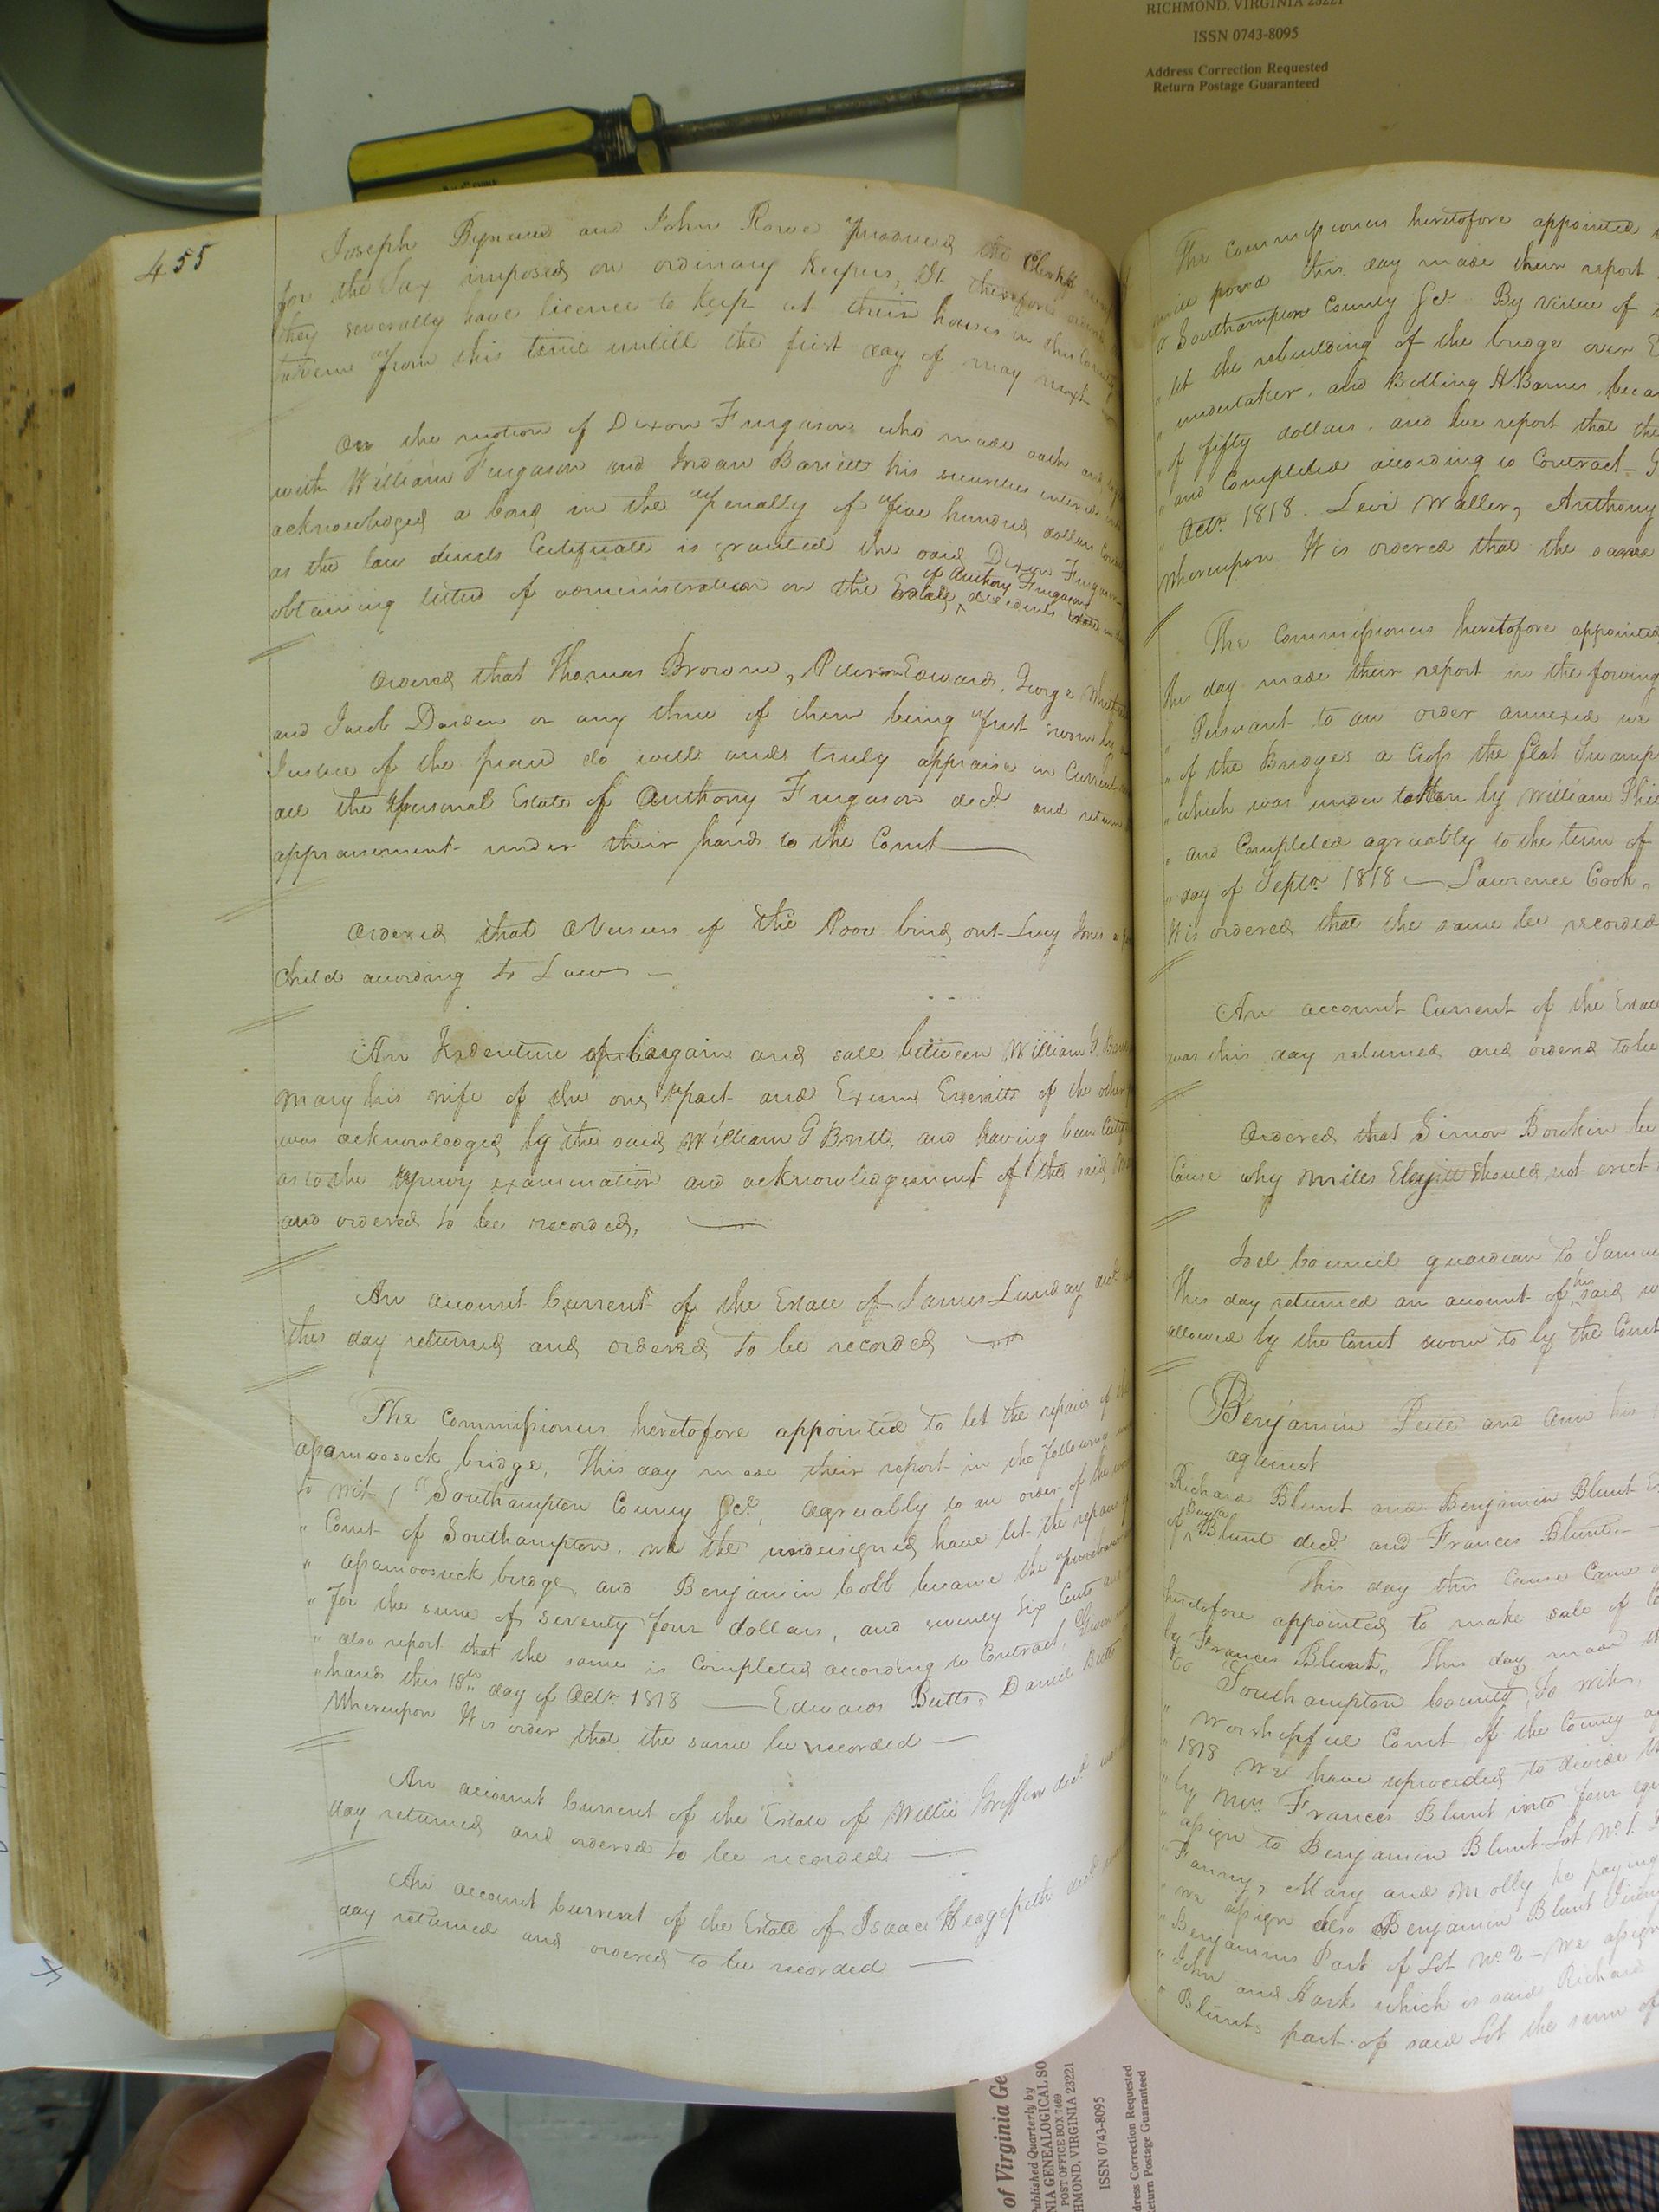 RICHMOND, VIRGINIA 23221
ISSN 0743-8095
Address Correction Requested
Return Postage Guaranteed
455
Joseph and John Rowe produced the Clerks
for the Tax imposed on ordinary keepers, It therefore
they severally have licence to keep at their houses in this County
tavern from this time untill the first day of may next
On the motion of Dixon Furgason who made oath and
with William Furgason and Jordan Barrett his securities entered into
acknowledged a bond in the penalty of five hundred dollars
as the law directs Certificate is granted the said Dixon
of Anthony Furgason
obtaining letters of administration on the Estate decedents
Ordered that Thomas Browne, Peterson Edwards, George
and Jacob Darden or any three of them being first sworn by
Justice of the peace do well and truly appraise in Current
all the personal Estate of Anthony Furgason decd and return
appraisement under their hands to the Court
Ordered that Overseers of the Poor bind out Lucy Jones
Child acording to Law
An Indenture of bargain and sale between William G.
Mary his wife of the one part and Exum Everitt of the other
was acknowledged by the said William G Britt, and having been
as to the privy examination and acknowledgement of the said
and ordered to be recorded,
An account Current of the Estate of James Lunday decd
this day returned and ordered to be recorded
The Commissioners heretofore appointed to let the repairs of
assamoosock bridge, This day made their report in the following
to wit, "Southampton County &c., agreeably to an order of the
" Court of Southampton. we the undersigned have let the repairs
" assamoosuck bridge, and Benjamin Cobb became the
" For the sum of seventy four dollars, and seventy six Cents
" also report that the same is Completed according to Contract, Given
" hands this 18th day of Octr. 1818 — Edwards Butts, Daniel Butts
Whereupon It is order that the same be recorded —
An account Current of the Estate of Willie Griffin decd
day returned and ordered to be recorded —
An account Current of the Estate of Isaac Hedgepeth decd
day returned and ordered to be recorded —
The Commissioners heretofore appointed
pond this day made their report
Southampton County &c. By virtue of
let the rebuilding of the bridge over
" undertaker, and Bolling H. Barnes,
" of fifty dollars. and we report that the
" and Completed according to Contract —
" Octr. 1818. Levi Waller, Anthony
Whereupon It is ordered that the same
The Commissioners heretofore appointed
this day made their report in the
" Persuant to an order annexed we
" of the Bridges a Cross the flat Swamp
" which was under taken by William
" and Completed agreeably to the term of
" day of Septr. 1818 — Lawrence Cook,
It is ordered that the same be recorded
An account Current of the Estate
was this day returned and ordered to be
Ordered that Simon Boykin be
Cause why Miles should not erect
Joel Council guardian to
his
This day returned an account of said
allowed by the Court sworn to by the
Benjamin Peete and Ann his
against
Richard Blunt and Benjamin Blunt
of Blunt decd and Frances Blunt —
This day this Cause Came
heretofore appointed to make sale of
by Frances Blunt, This day made
" Southampton County, To wit,
" Worshipful Court of the County
" 1818 We have proceeded to divide
" by Mrs Frances Blunt into four
" assign to Benjamin Blunt Lot No 1.
" Fanny, Mary and Molly he paying
" we assign also Benjamin Blunt
" Benjamins Part of Lot No 2 — We assign
" John and Hark which is said Richard
" Blunts part of said Lot the sum of
of Virginia Ge
ublished Quarterly by
NIA GENEALOGICAL SO
POST OFFICE BOX 7469
HMOND, VIRGINIA 23221
ISSN 0743-8095
ddress Correction Requested
eturn Postage Guaranteed